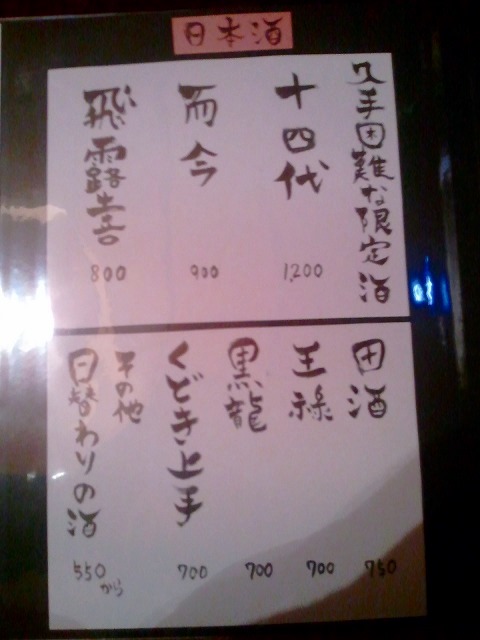 日本酒
入手困難な限定酒
十四代
1,200
而今
900
飛露喜
800
田酒
750
王祿
700
黒龍
700
くどき上手
700
その他
日替わりの酒
550から